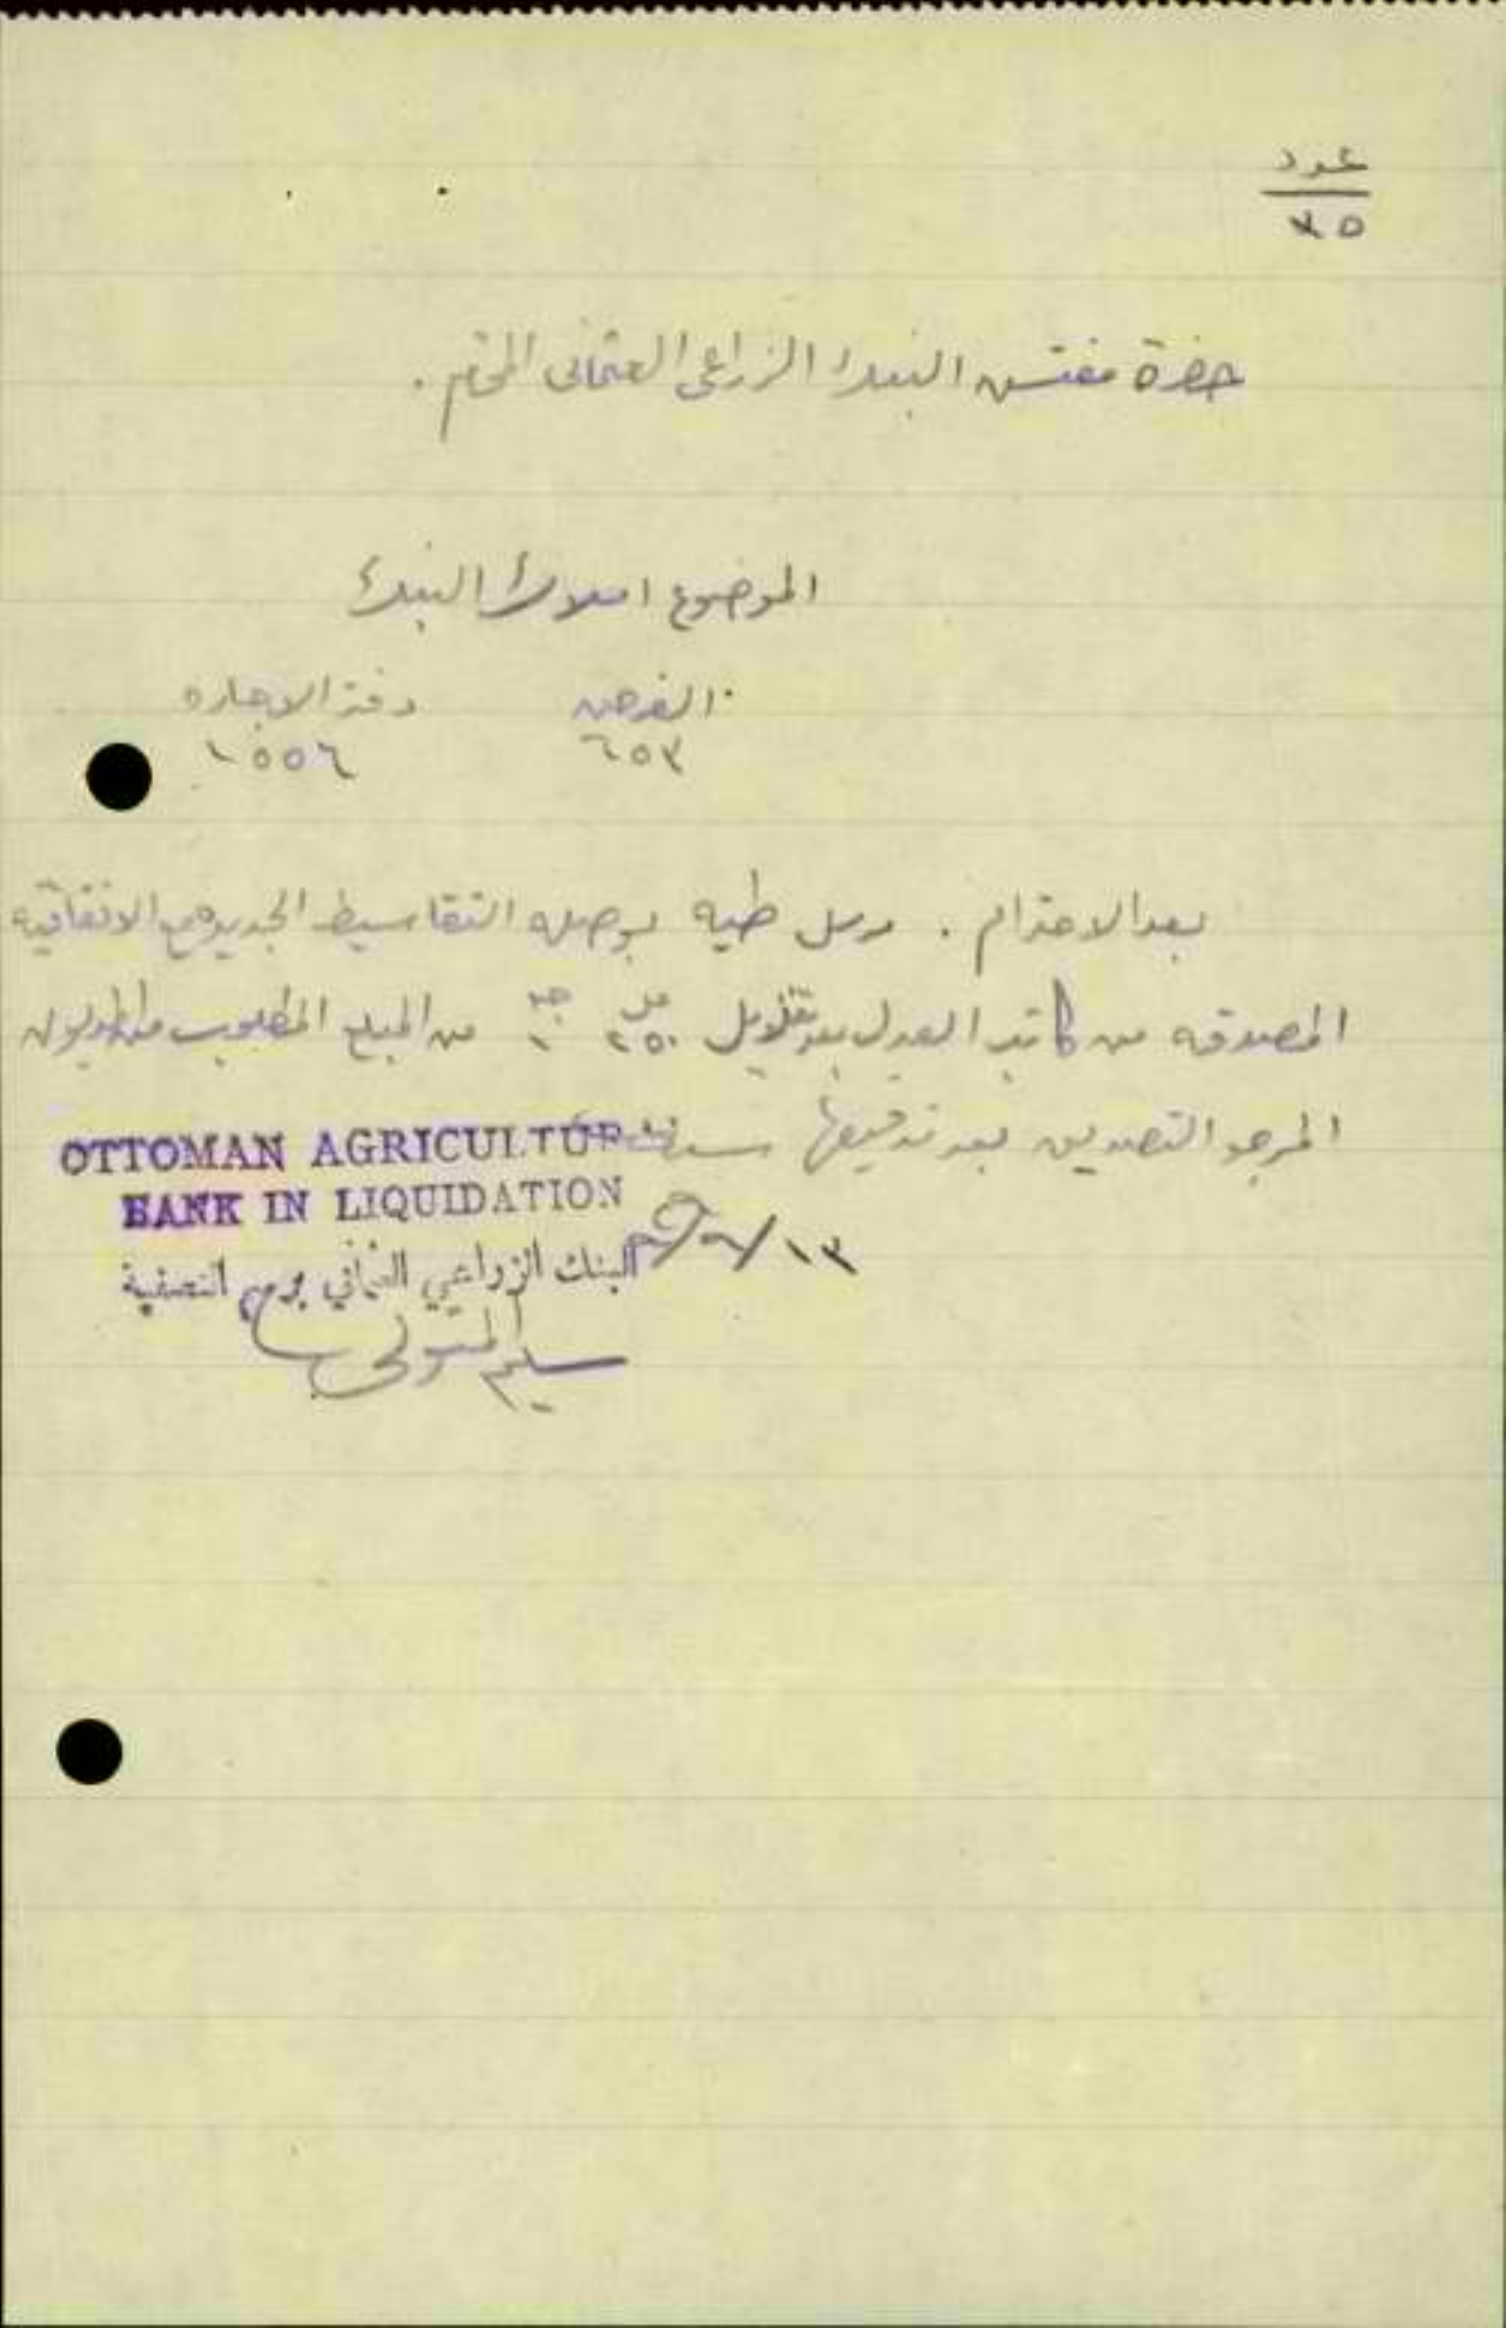 عدد
٣٥
حضرة مفتش البنك الزراعي العثماني المحترم .
الموضوع املاك البنك
القرض دفتر الاجاره
٦٥٣ ١٥٥٦
بعد الاحترام . مرسل طيه بوصله التقاسيط الجديده مع الاتفاقيه
المصدقه من كاتب العدل بعد تنزيل ٢٥٠ مل ١ جنيه من المبلغ المطلوب من المديون
المرجو التصديق بعد تدقيقها سيدي
OTTOMAN AGRICULTUR
BANK IN LIQUIDATION
البنك الزراعي العثماني برسم التصفية
سليم المتولي